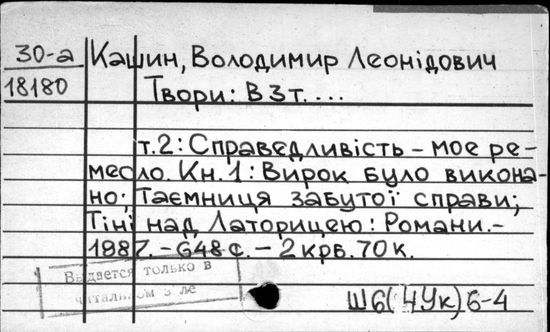 30-а Кашин, Володимир Леонідович
18180 Твори: В 3 т. ....
т.2: Справедливість – моє ре-
месло. Кн. 1: Вирок було викона-
но; Таємниця забутої справи;
Тіні над Латорицею: Романи.-
1987. – 648 с. – 2 крб. 70 к.
Выдается только в
читальном з ле
Ш6(4Ук)6-4